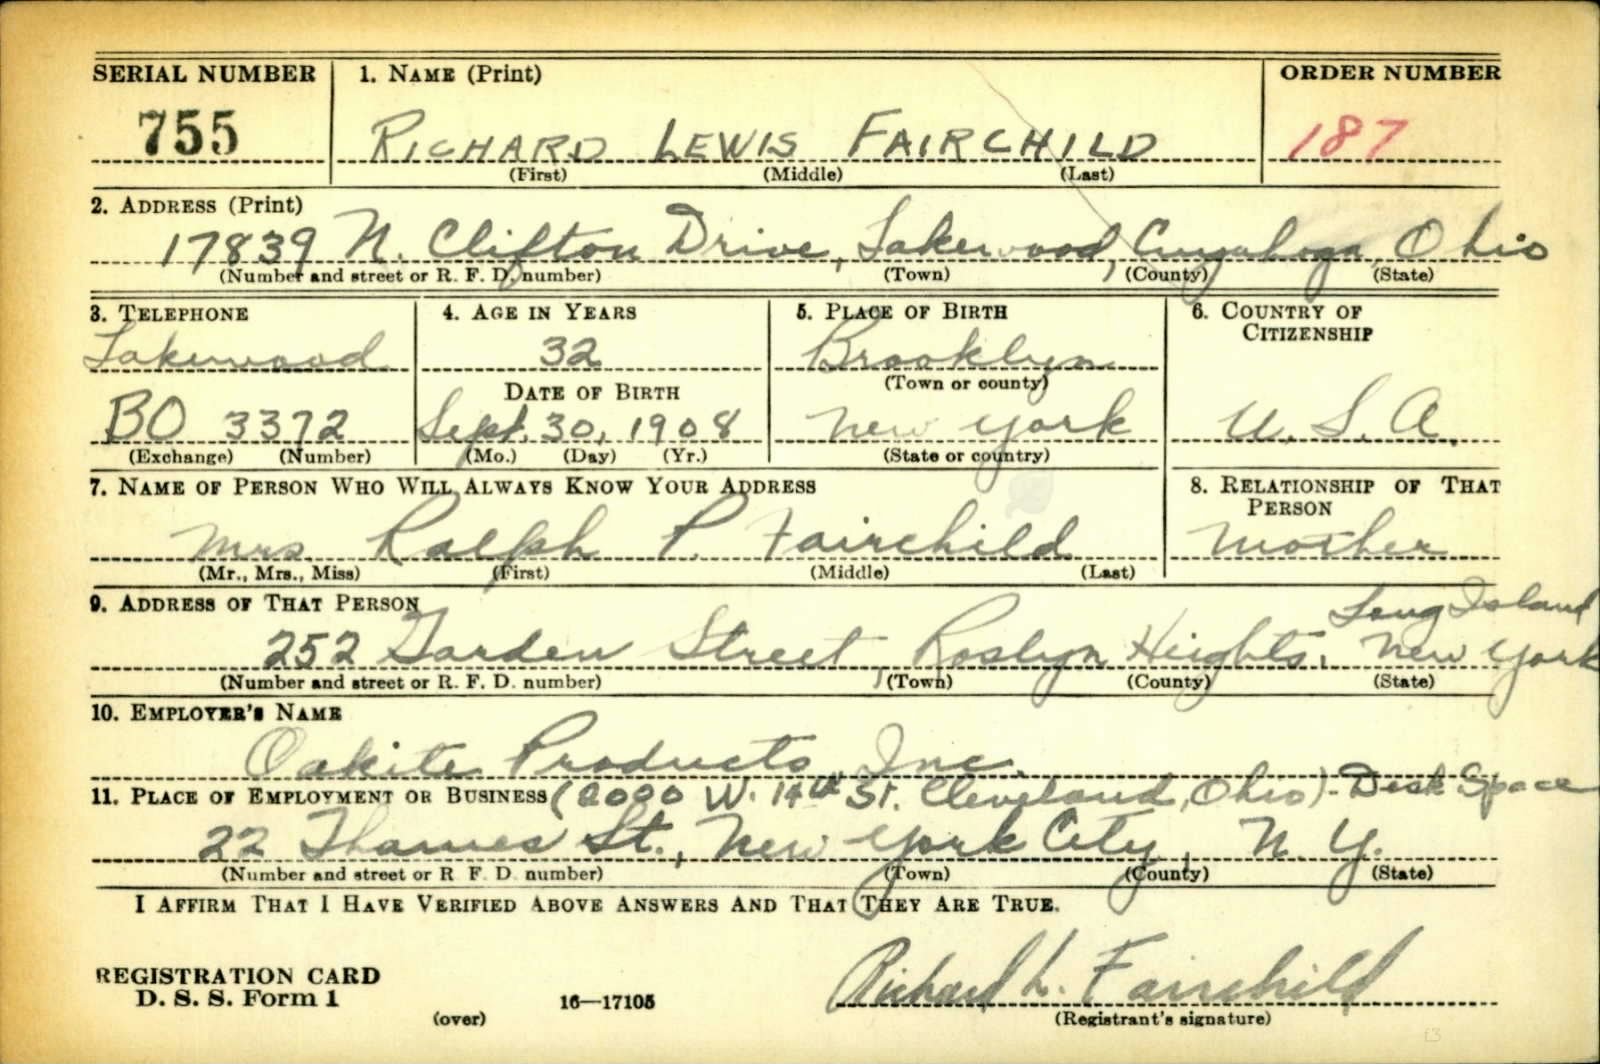 SERIAL NUMBER 1. NAME (Print) ORDER NUMBER
755 RICHARD LEWIS FAIRCHILD 187
(First) (Middle) (Last)
2. ADDRESS (Print)
17839 N. Clifton Drive, Lakewood, Cuyahoga, Ohio
(Number and street or R. F. D. number) (Town) (County) (State)
3. TELEPHONE 4. AGE IN YEARS 5. PLACE OF BIRTH 6. COUNTRY OF CITIZENSHIP
Lakewood 32 Brooklyn
DATE OF BIRTH (Town or county)
BO 3372 Sept. 30, 1908 New York U. S. A.
(Exchange) (Number) (Mo.) (Day) (Yr.) (State or country)
7. NAME OF PERSON WHO WILL ALWAYS KNOW YOUR ADDRESS 8. RELATIONSHIP OF THAT PERSON
Mrs Ralph P. Fairchild Mother
(Mr., Mrs., Miss) (First) (Middle) (Last)
9. ADDRESS OF THAT PERSON Long Island
252 Garden Street, Roslyn Heights, New York
(Number and street or R. F. D. number) (Town) (County) (State)
10. EMPLOYER'S NAME
Oakite Products, Inc.
11. PLACE OF EMPLOYMENT OR BUSINESS (2000 W. 14th St. Cleveland, Ohio) - Desk Space
22 Thames St., New York City, N. Y.
(Number and street or R F D. number) (Town) (County) (State)
I AFFIRM THAT I HAVE VERIFIED ABOVE ANSWERS AND THAT THEY ARE TRUE.
REGISTRATION CARD
D. S. S. Form 1 16—17105 Richard L. Fairchild
(over) (Registrant's signature)